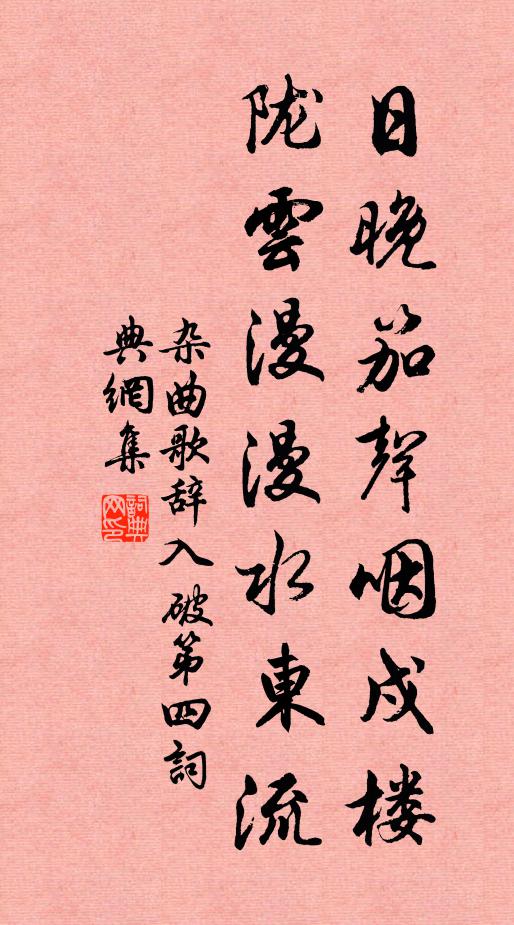 日晚笳聲咽戍楼
陇雲漫漫水東流
杂曲歌辞入破第四詞
典網集
詞典網印